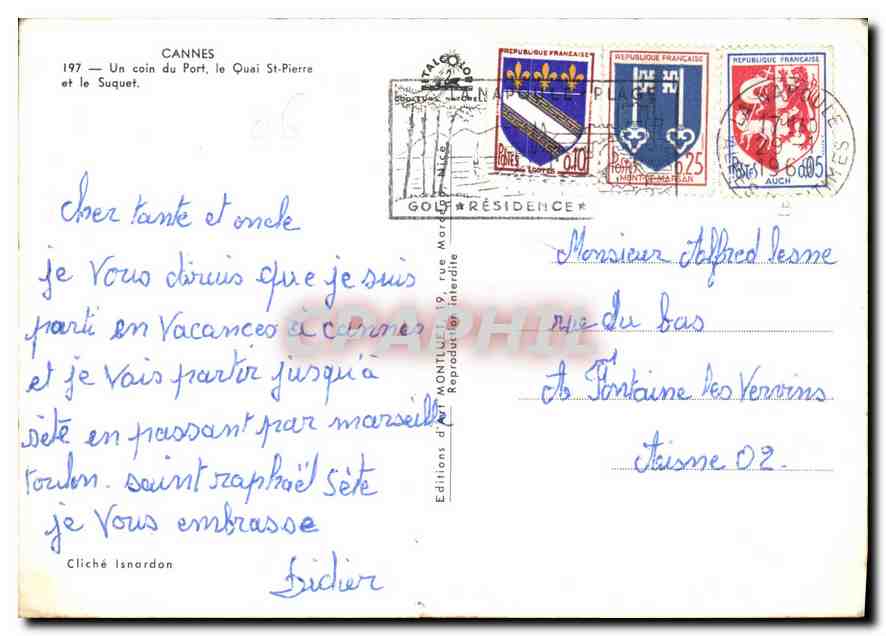 CANNES
197 — Un coin du Port, le Quai St-Pierre
et le Suquet.
Cher tante et oncle
je vous dirais que je suis
parti en Vacances à cannes
et je vais partir jusqu'à
sète en passant par marseille
toulon. saint raphaël sète
je vous embrasse
Didier
Cliché Isnardon
Editions d'Art MONTLUET, 19, rue Nice
Reproduction interdite
LA NAPOULE PLAGE
GOLF ★ RÉSIDENCE ★
REPUBLIQUE FRANÇAISE
POSTES 0,10
REPUBLIQUE FRANÇAISE
0,25
MONT-DE-MARSAN
REPUBLIQUE FRANÇAISE
POSTES 0,05
AUCH
LA NAPOULE
Monsieur Alfred lesne
rue du bas
A Fontaine les Vervins
Aisne 02.
CPAPHIL